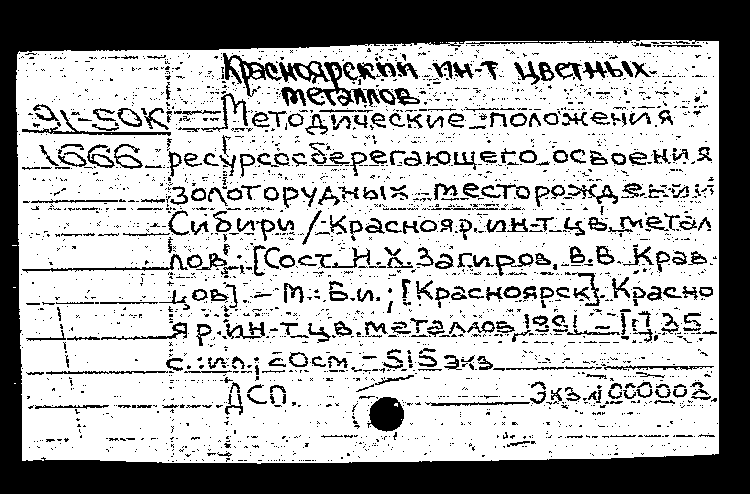 Красноярский ин-т цветных
металлов
91-50К Методические положения
1666 ресурсосберегающего освоения
золоторудных месторождений
Сибири / Краснояр. ин-т цв. метал
лов ; [Сост. Н.Х. Загиров, В.В. Крав
цов]. - М. : Б.и. ; [Красноярск]. Красно
яр. ин-т цв. металлов, 1991. - [1], 35
с. : ил. ; 20см. - 515 экз
ДСП. Экз. N 000003.